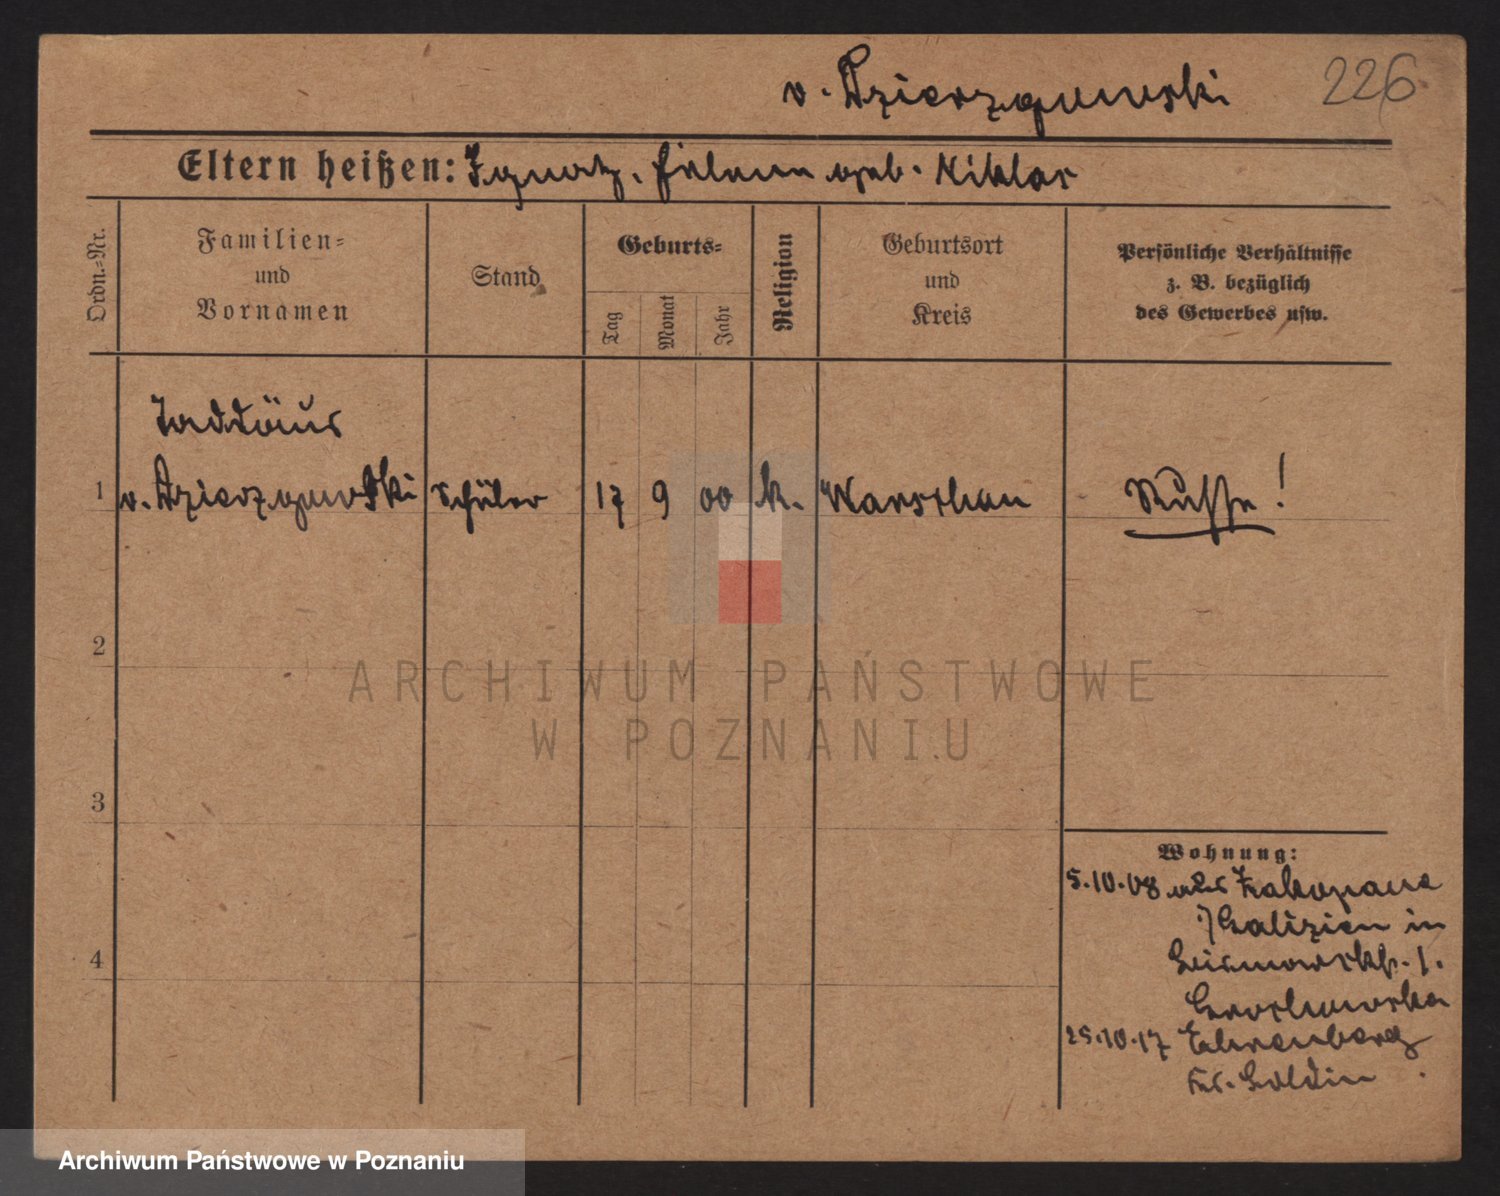 v. Dzierzgowski 226
Eltern heißen: Ignatz, Helena geb. Niklas
Ordn.-Nr.
Familien-
und
Vornamen
Stand
Geburts-
Tag
Monat
Jahr
Religion
Geburtsort
und
Kreis
Persönliche Verhältnisse
z. B. bezüglich
des Gewerbes usw.
Taddäus
1 v. Dzierzgowski Schüler 17 9 00 k. Warschau Russe!
2
ARCHIWUM PAŃSTWOWE
W POZNANIU
3
4
Wohnung:
5.10.08 aus Zakopane
i/Galizien in
1.
25.10.17 Ehrenberg
Kr. Soldin
Archiwum Państwowe w Poznaniu